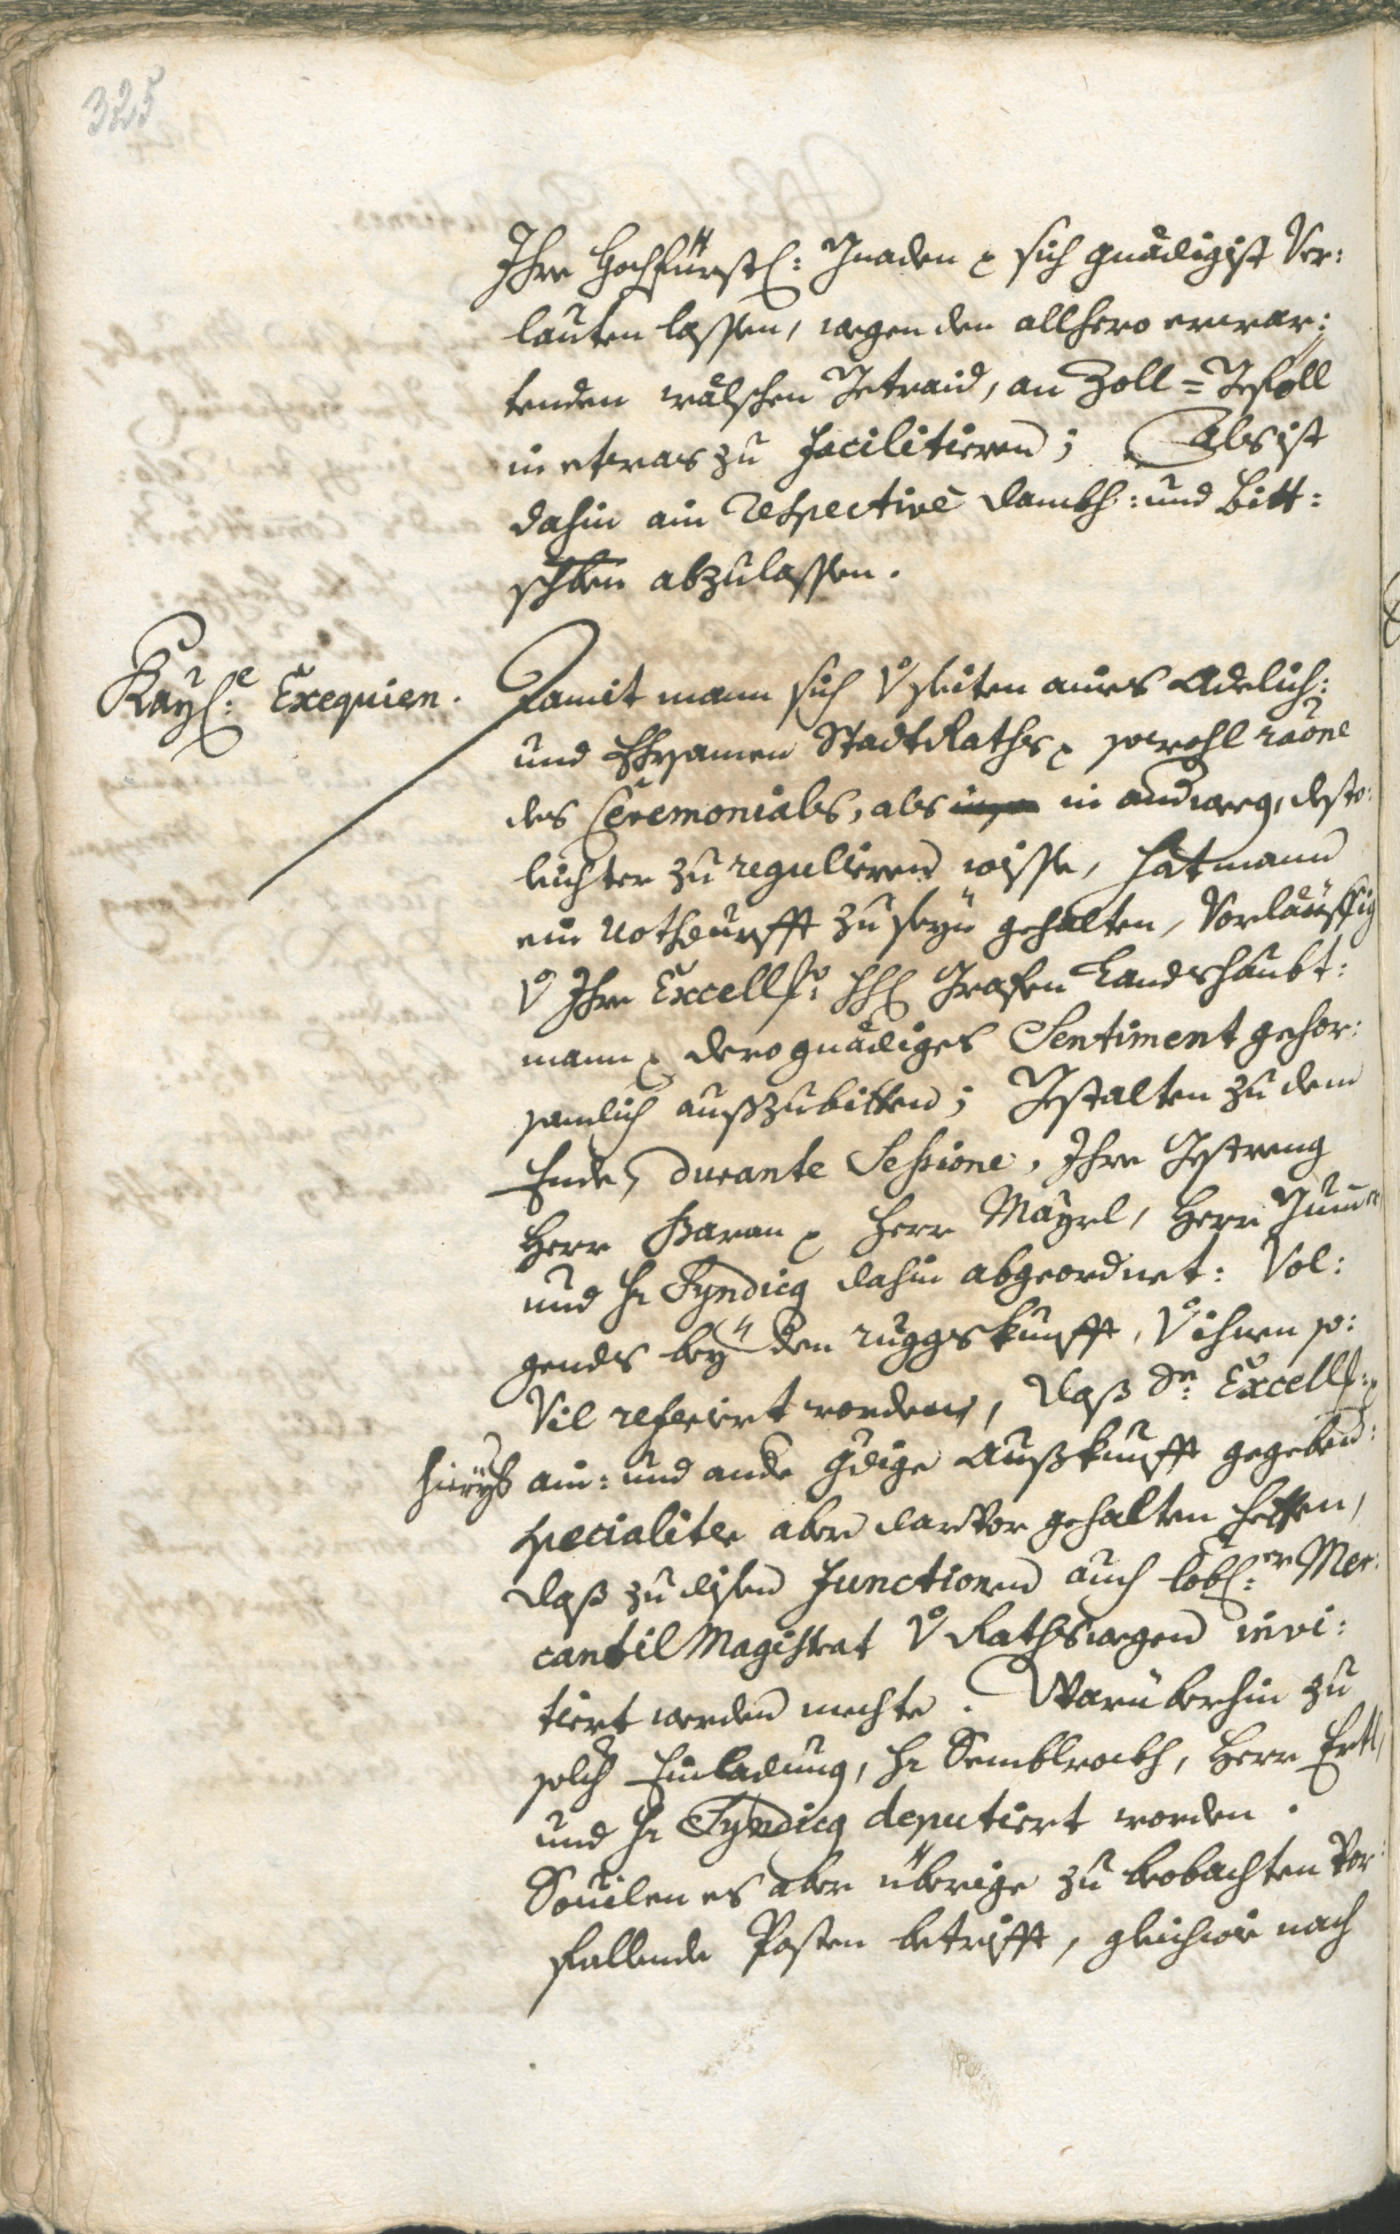 325
Ihre Hochfürstl: Gnaden p sich gnädigist Ver:
lauten lassen, wegen den allhero erwar:
tenden wälschen Getraid, an Zoll=Gföll
in etwas zu facilitieren; Als ist
dahin ain respectivè dankh: und bitt:
schben abzulassen.
Kayl:e Exequien.
Damit mann sich v seiten aines Adelich:
und Ehrsamen StadtRaths p sowohl raõne
des Ceremonials, als in andweg, desto
leichter zu regulieren wisse, hat mann
ein notdurfft zu seyn gehalten, Vorläuffig
v Ihre Excellz: hh Grafen Landshaubt:
mann p dero gnädiges Sentiment gehor:
samlich auszubitten; Gstalten zu dem
Ende, durante Sessione, Ihre Gstreng
Herr Baron p Herr Mayrl, Herr Gumer
und Hr Syndicq dahin abgeordnet: Vol:
gends bey den ruggkunfft, v ihnen so:
Vil referirt worden, daß Sr: Excellz:
hierüb ain: und ande gdige Auskunfft gegeben:
specialiter aber darvor gehalten hetten,
daß zu disen Functionen auch löbl:er Mer:
cantil Magistrat v Rathswegen invi:
tiert werden mechte. Warüberhin zu
solch Einladung, Hr Semblrockh, Herr Ertl,
und Hr Syndicq deputiert worden.
Sovilen es aber übrige zu beobachten Vor:
fallende Posten betrifft, gleichwie nach